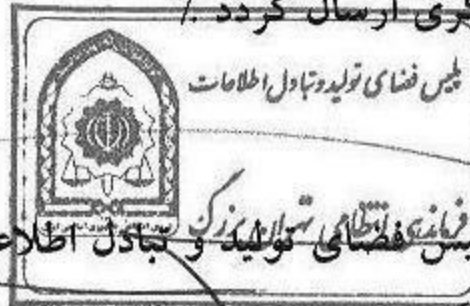 گری ارسال گردد ./
پلیس فضای تولید و تبادل اطلاعات
فرماندهی انتظامی تهران بزرگ
یس فضای تولید و تبادل اطلاع